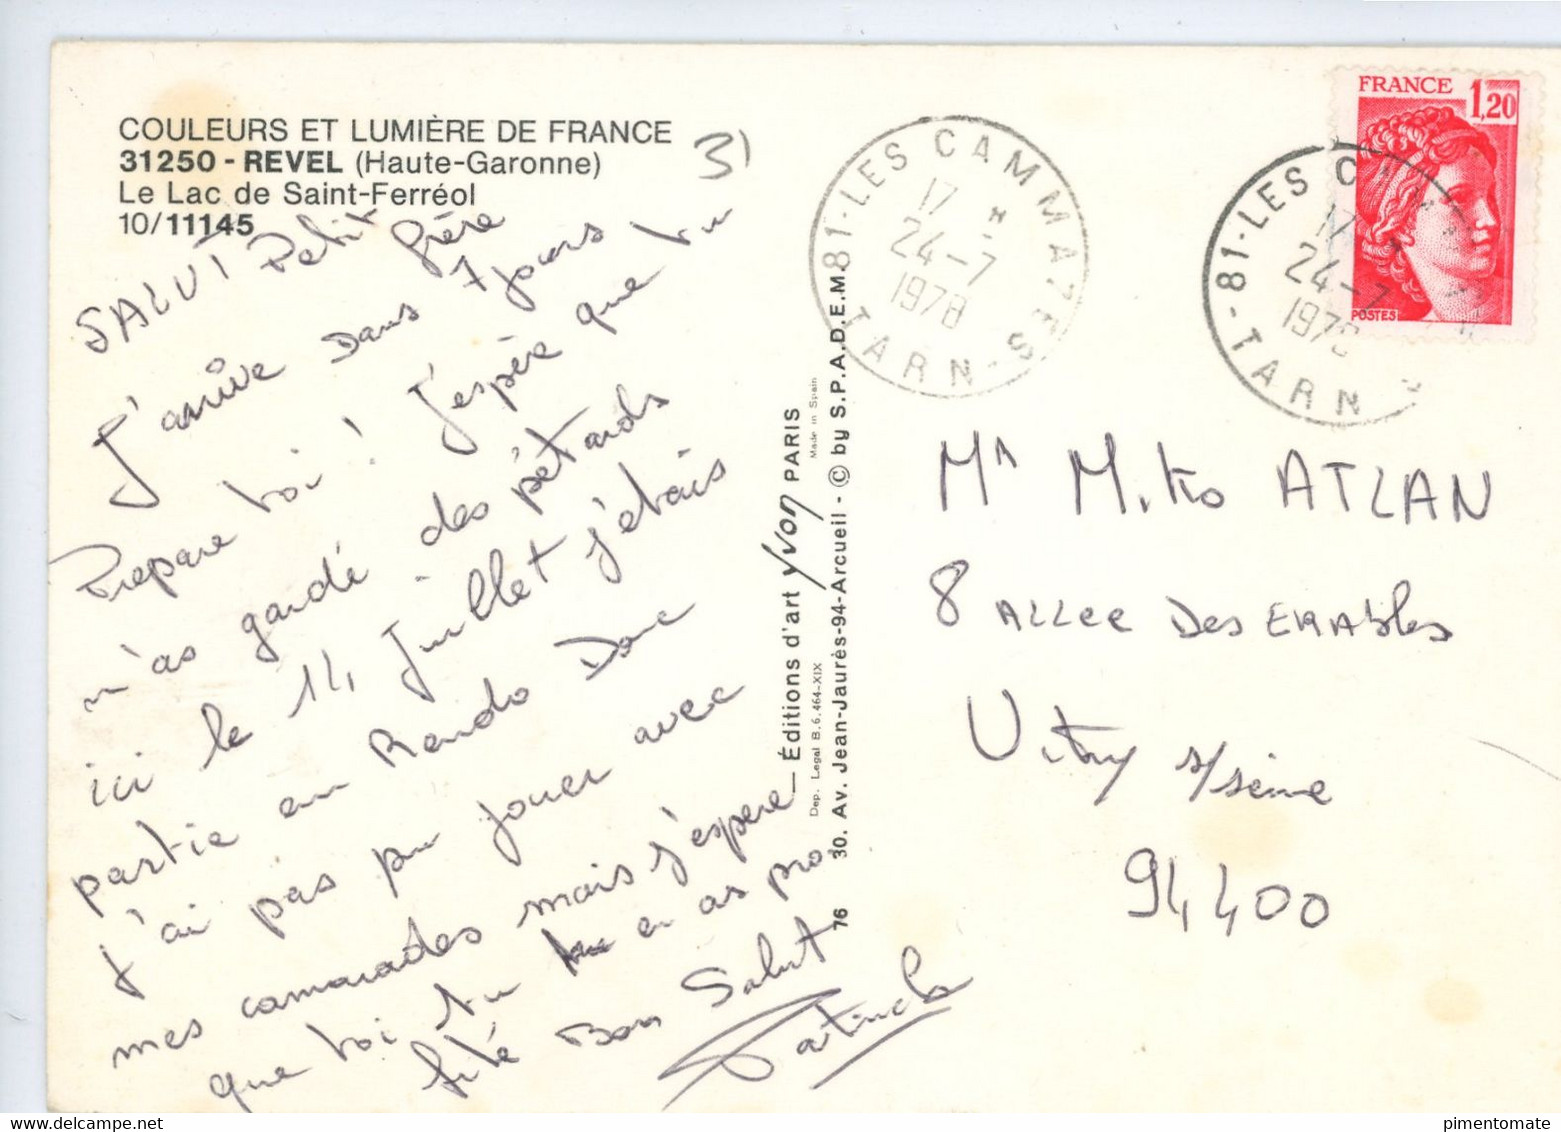 COULEURS ET LUMIÈRE DE FRANCE
31250 - REVEL (Haute-Garonne)
Le Lac de Saint-Ferréol
10/11145
31
SALUT Petit frère
J'arrive Dans 7 jours
Prepare toi ! J'espère que tu
m'as gardé des pétards
ici le 14 Juillet j'étais
partie en Rando Donc
j'ai pas pu jouer avec
mes camarades mais j'espere
que toi tu en as pro-
fité Bon Salut
— Éditions d'art Yvon PARIS
Dep. Legal B.6.464-XIX
Made in Spain
76 30. Av. Jean-Jaurès-94-Arcueil - © by S.P.A.D.E.M.
81-LES CAMMAZES
17 H
24-7
1978
TARN
81-LES
17
24-7
TARN
FRANCE 1,20
POSTES
Mr Miko ATLAN
8 ALLEE Des ERABles
Vitry s/seine
94400
pimentomate